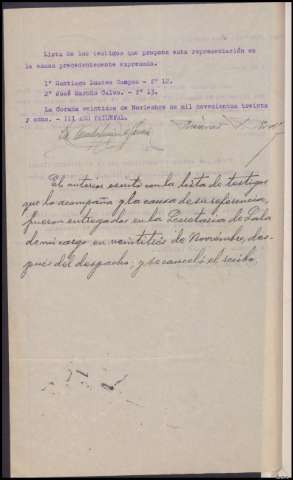 Lista de los testigos que propone esta representación en
la causa precedentemente expresada.
1º Santiago Campos - Fº 12.
2º José Martín Calvo. - Fº 13.
La Coruña veintidos de Noviembre de mil novecientos treinta
y ocho. - III AÑO TRIUNFAL.
El anterior escrito con la lista de testigos
que lo acompaña y la causa de su referencia,
fueron entregados en la Secretaría de Sala
de mi cargo en veintitrés de Noviembre, des-
pués del despacho; y se canceló el recibo.